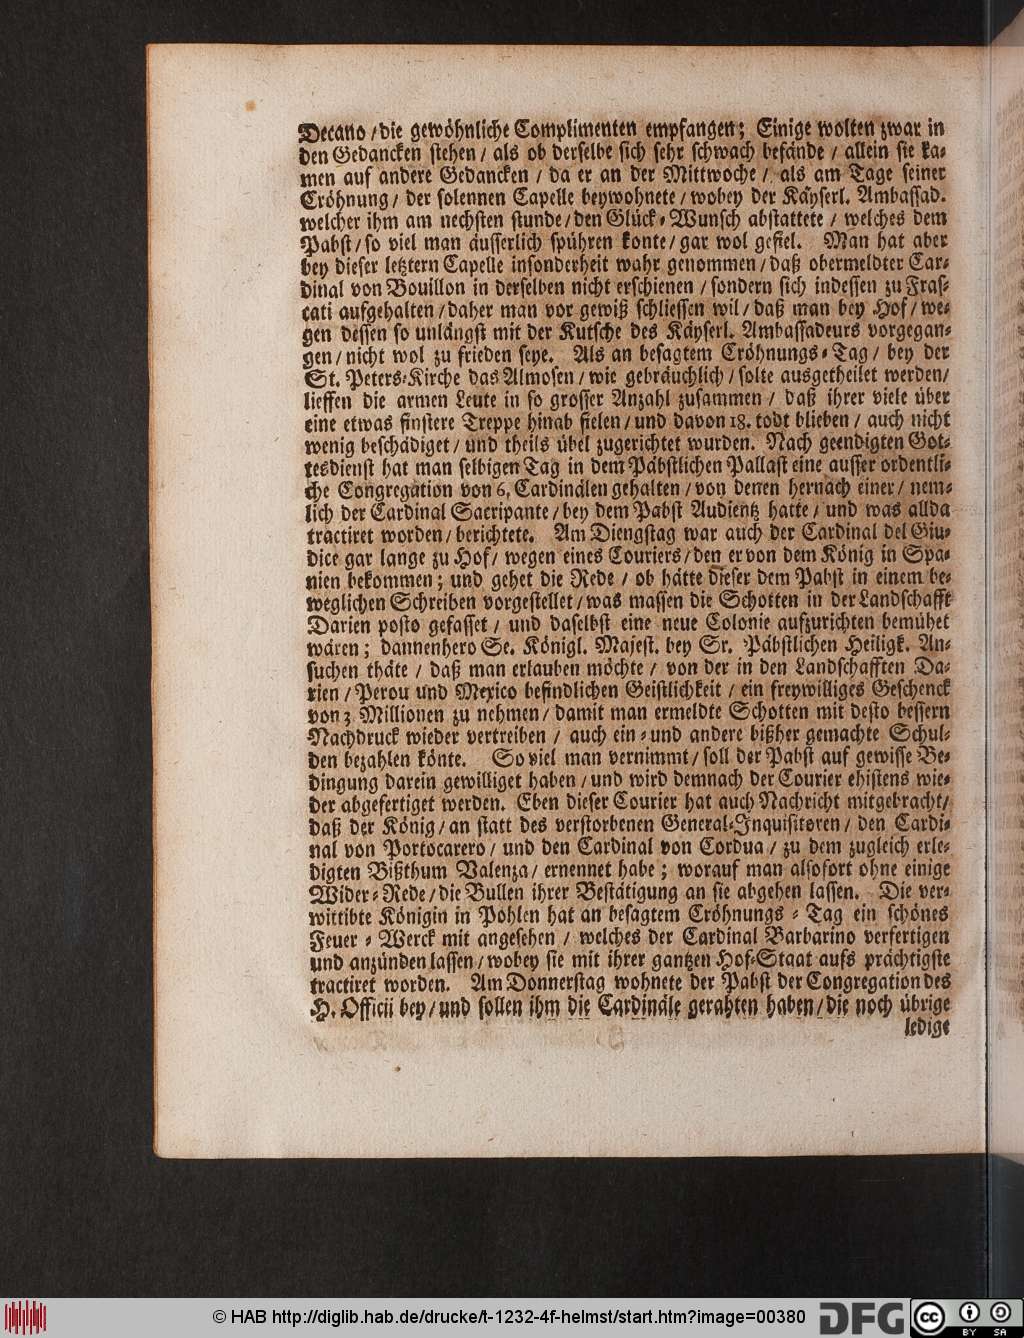 Decano / die gewöhnliche Complimenten empfangen; Einige wolten zwar in
den Gedancken stehen / als ob derselbe sich sehr schwach befände / allein sie ka-
men auf andere Gedancken / da er an der Mittwoche / als am Tage seiner
Cröhnung / der solennen Capelle beywohnete / wobey der Käyserl. Ambassad.
welcher ihm am nechsten stunde / den Glück-Wunsch abstattete / welches dem
Pabst / so viel man äusserlich spühren konte / gar wol gefiel. Man hat aber
bey dieser letztern Capelle insonderheit wahr genommen / daß obermeldter Car-
dinal von Bouillon in derselben nicht erschienen / sondern sich indessen zu Fras-
cati aufgehalten / daher man vor gewiß schliessen wil / daß man bey Hof / we-
gen dessen so unlängst mit der Kutsche des Käyserl. Ambassadeurs vorgegan-
gen / nicht wol zu frieden seye. Als an besagtem Cröhnungs-Tag / bey der
St. Peters-Kirche das Almosen / wie gebräuchlich / solte ausgetheilet werden /
lieffen die armen Leute in so grosser Anzahl zusammen / daß ihrer viele über
eine etwas finstere Treppe hinab fielen / und davon 18. todt blieben / auch nicht
wenig beschädiget / und theils übel zugerichtet wurden. Nach geendigten Got-
tesdienst hat man selbigen Tag in dem Päbstlichen Pallast eine ausser ordentli-
che Congregation von 6. Cardinälen gehalten / von denen hernach einer / nem-
lich der Cardinal Sacripante / bey dem Pabst Audientz hatte / und was allda
tractiret worden / berichtete. Am Diengstag war auch der Cardinal del Giu-
dice gar lange zu Hof / wegen eines Couriers / den er von dem König in Spa-
nien bekommen; und gehet die Rede / ob hätte dieser dem Pabst in einem be-
weglichen Schreiben vorgestellet / was massen die Schotten in der Landschafft
Darien posto gefasset / und daselbst eine neue Colonie aufzurichten bemühet
wären; dannenhero Se. Königl. Majest. bey Sr. Päbstlichen Heiligk. An-
suchen thäte / daß man erlauben möchte / von der in den Landschafften Da-
rien / Perou und Mexico befindlichen Geistlichkeit / ein freywilliges Geschenck
von 3 Millionen zu nehmen / damit man ermeldte Schotten mit desto bessern
Nachdruck wieder vertreiben / auch ein- und andere bißher gemachte Schul-
den bezahlen könte. So viel man vernimmt / soll der Pabst auf gewisse Be-
dingung darein gewilliget haben / und wird demnach der Courier ehistens wie-
der abgefertiget werden. Eben dieser Courier hat auch Nachricht mitgebracht /
daß der König / an statt des verstorbenen General-Inquisitoren / den Cardi-
nal von Portocarero / und den Cardinal von Cordua / zu dem zugleich erle-
digten Bißthum Valenza / ernennet habe; worauf man alsofort ohne einige
Wider-Rede / die Bullen ihrer Bestätigung an sie abgehen lassen. Die ver-
wittibte Königin in Pohlen hat an besagtem Cröhnungs-Tag ein schönes
Feuer-Werck mit angesehen / welches der Cardinal Barbarino verfertigen
und anzünden lassen / wobey sie mit ihrer gantzen Hof-Staat aufs prächtigste
tractiret worden. Am Donnerstag wohnete der Pabst der Congregation des
H. Officii bey / und sollen ihm die Cardinäle gerahten haben / die noch übrige
ledige
© HAB http://diglib.hab.de/drucke/t-1232-4f-helmst/start.htm?image=00380
DFG
cc BY SA